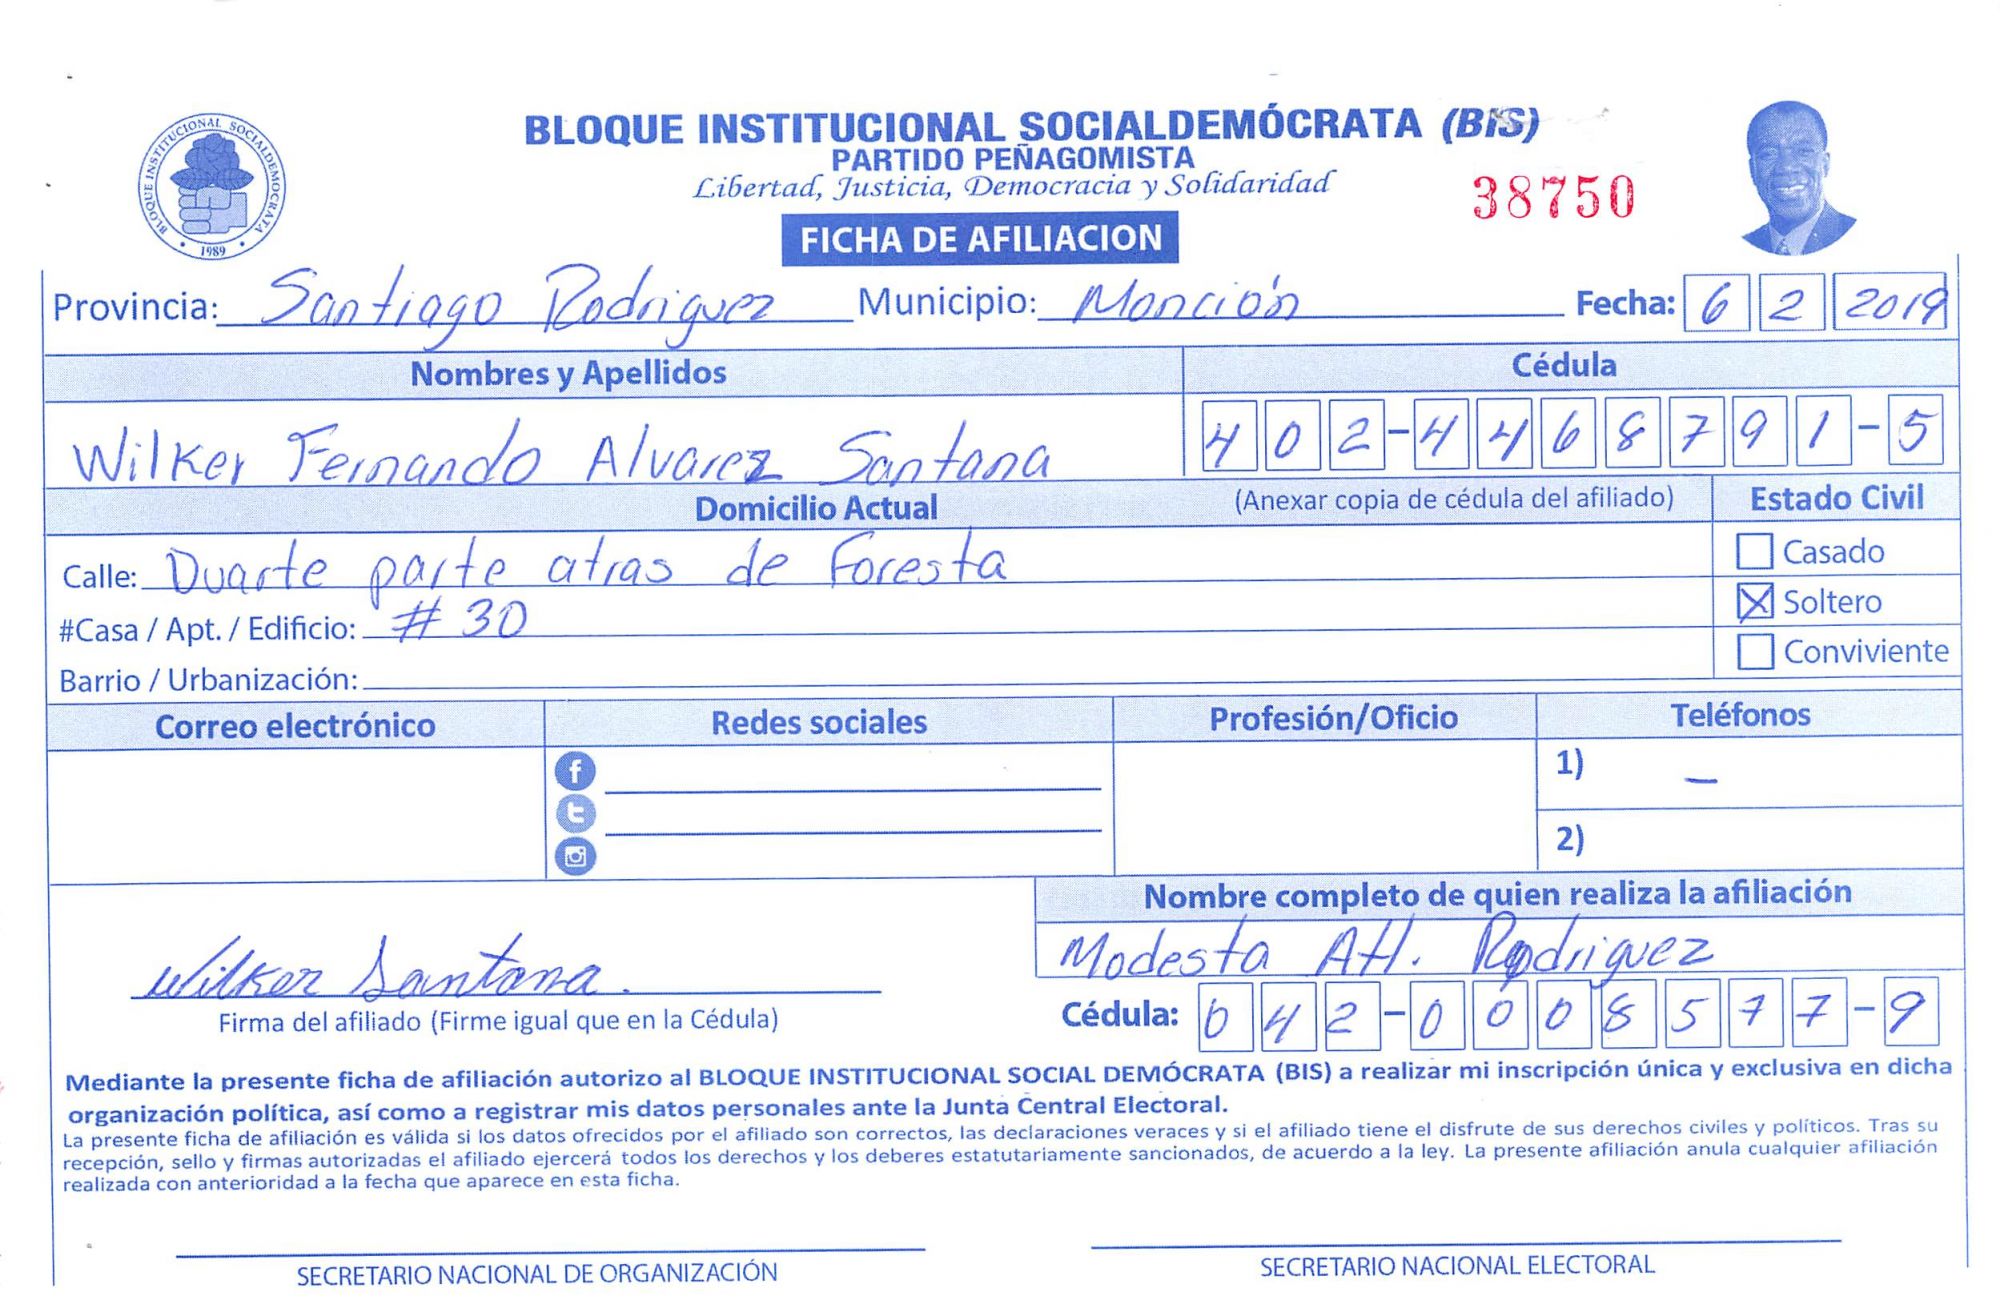 BLOQUE INSTITUCIONAL SOCIALDEMOCRATA
1989
BLOQUE INSTITUCIONAL SOCIALDEMÓCRATA (BIS)
PARTIDO PEÑAGOMISTA
Libertad, Justicia, Democracia y Solidaridad
38750
FICHA DE AFILIACION
Provincia: Santiago Rodriguez Municipio: Monción Fecha: 6 2 2019
Nombres y Apellidos Cédula
Wilker Fernando Alvarez Santana 402-4468791-5
Domicilio Actual (Anexar copia de cédula del afiliado) Estado Civil
Calle: Duarte parte atras de Foresta Casado
#Casa / Apt. / Edificio: # 30 Soltero
Barrio / Urbanización: Conviviente
Correo electrónico Redes sociales Profesión/Oficio Teléfonos
1) —
2)
Nombre completo de quien realiza la afiliación
Modesta Alt. Rodriguez
Wilker Santana.
Firma del afiliado (Firme igual que en la Cédula) Cédula: 042-0008577-9
Mediante la presente ficha de afiliación autorizo al BLOQUE INSTITUCIONAL SOCIAL DEMÓCRATA (BIS) a realizar mi inscripción única y exclusiva en dicha
organización política, así como a registrar mis datos personales ante la Junta Central Electoral.
La presente ficha de afiliación es válida si los datos ofrecidos por el afiliado son correctos, las declaraciones veraces y si el afiliado tiene el disfrute de sus derechos civiles y políticos. Tras su
recepción, sello y firmas autorizadas el afiliado ejercerá todos los derechos y los deberes estatutariamente sancionados, de acuerdo a la ley. La presente afiliación anula cualquier afiliación
realizada con anterioridad a la fecha que aparece en esta ficha.
SECRETARIO NACIONAL DE ORGANIZACIÓN SECRETARIO NACIONAL ELECTORAL